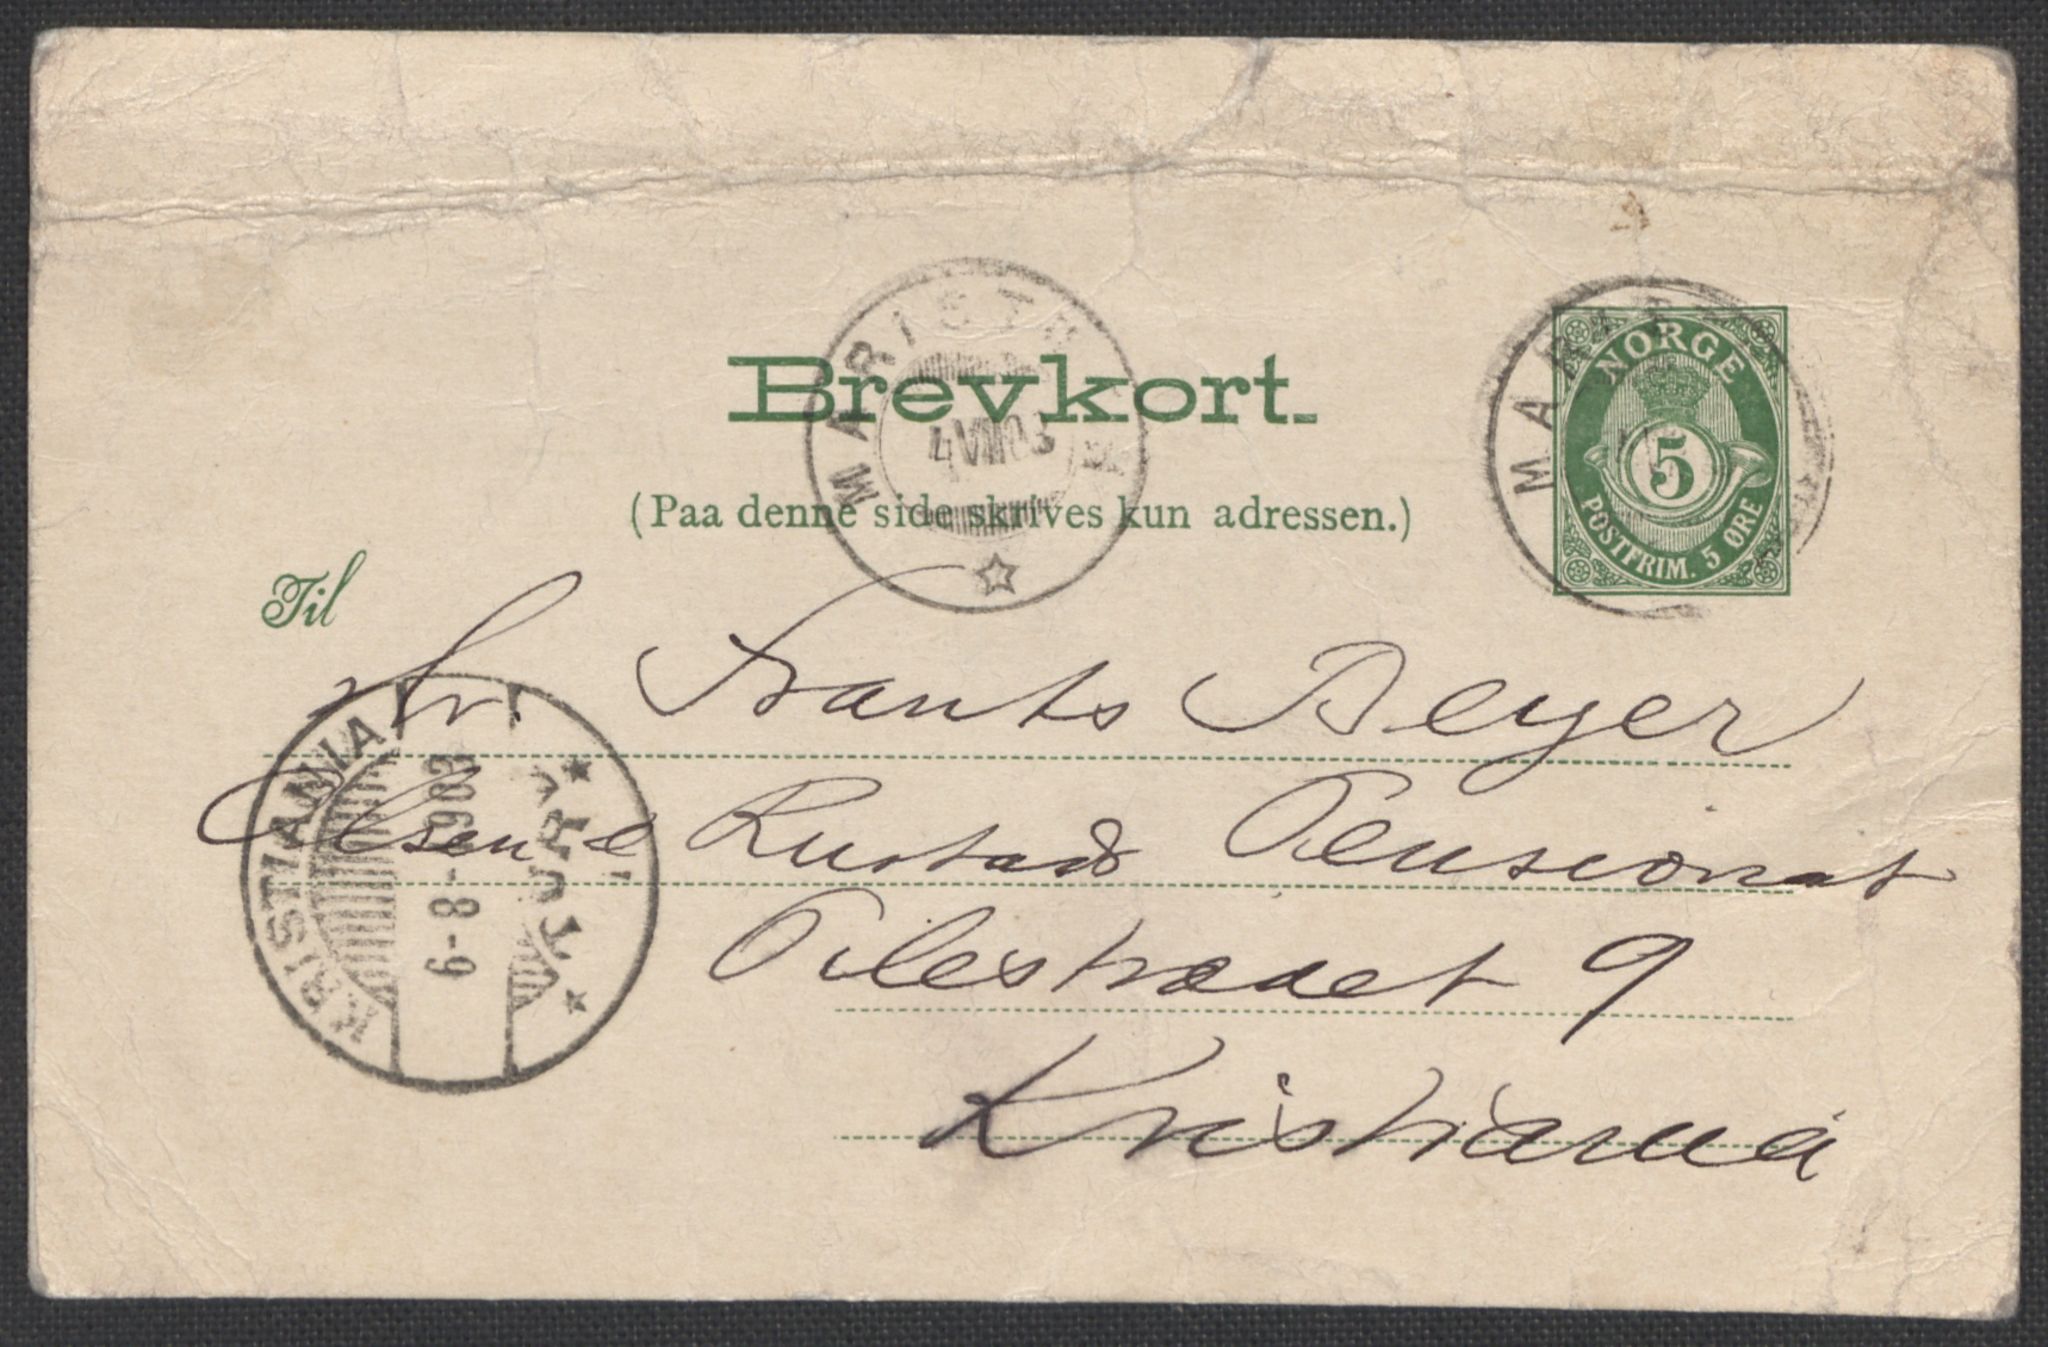 MARISTUEN
4 VIII 03
Brevkort.
(Paa denne side skrives kun adressen.)
NORGE
5
POSTFRIM. 5 ØRE
MARIST
Til
Hr. Frants Beyer
Olsen & Rustads Pensionat
Pilestrædet 9
Kristiania
KRISTIANIA
6-8-03
TUR